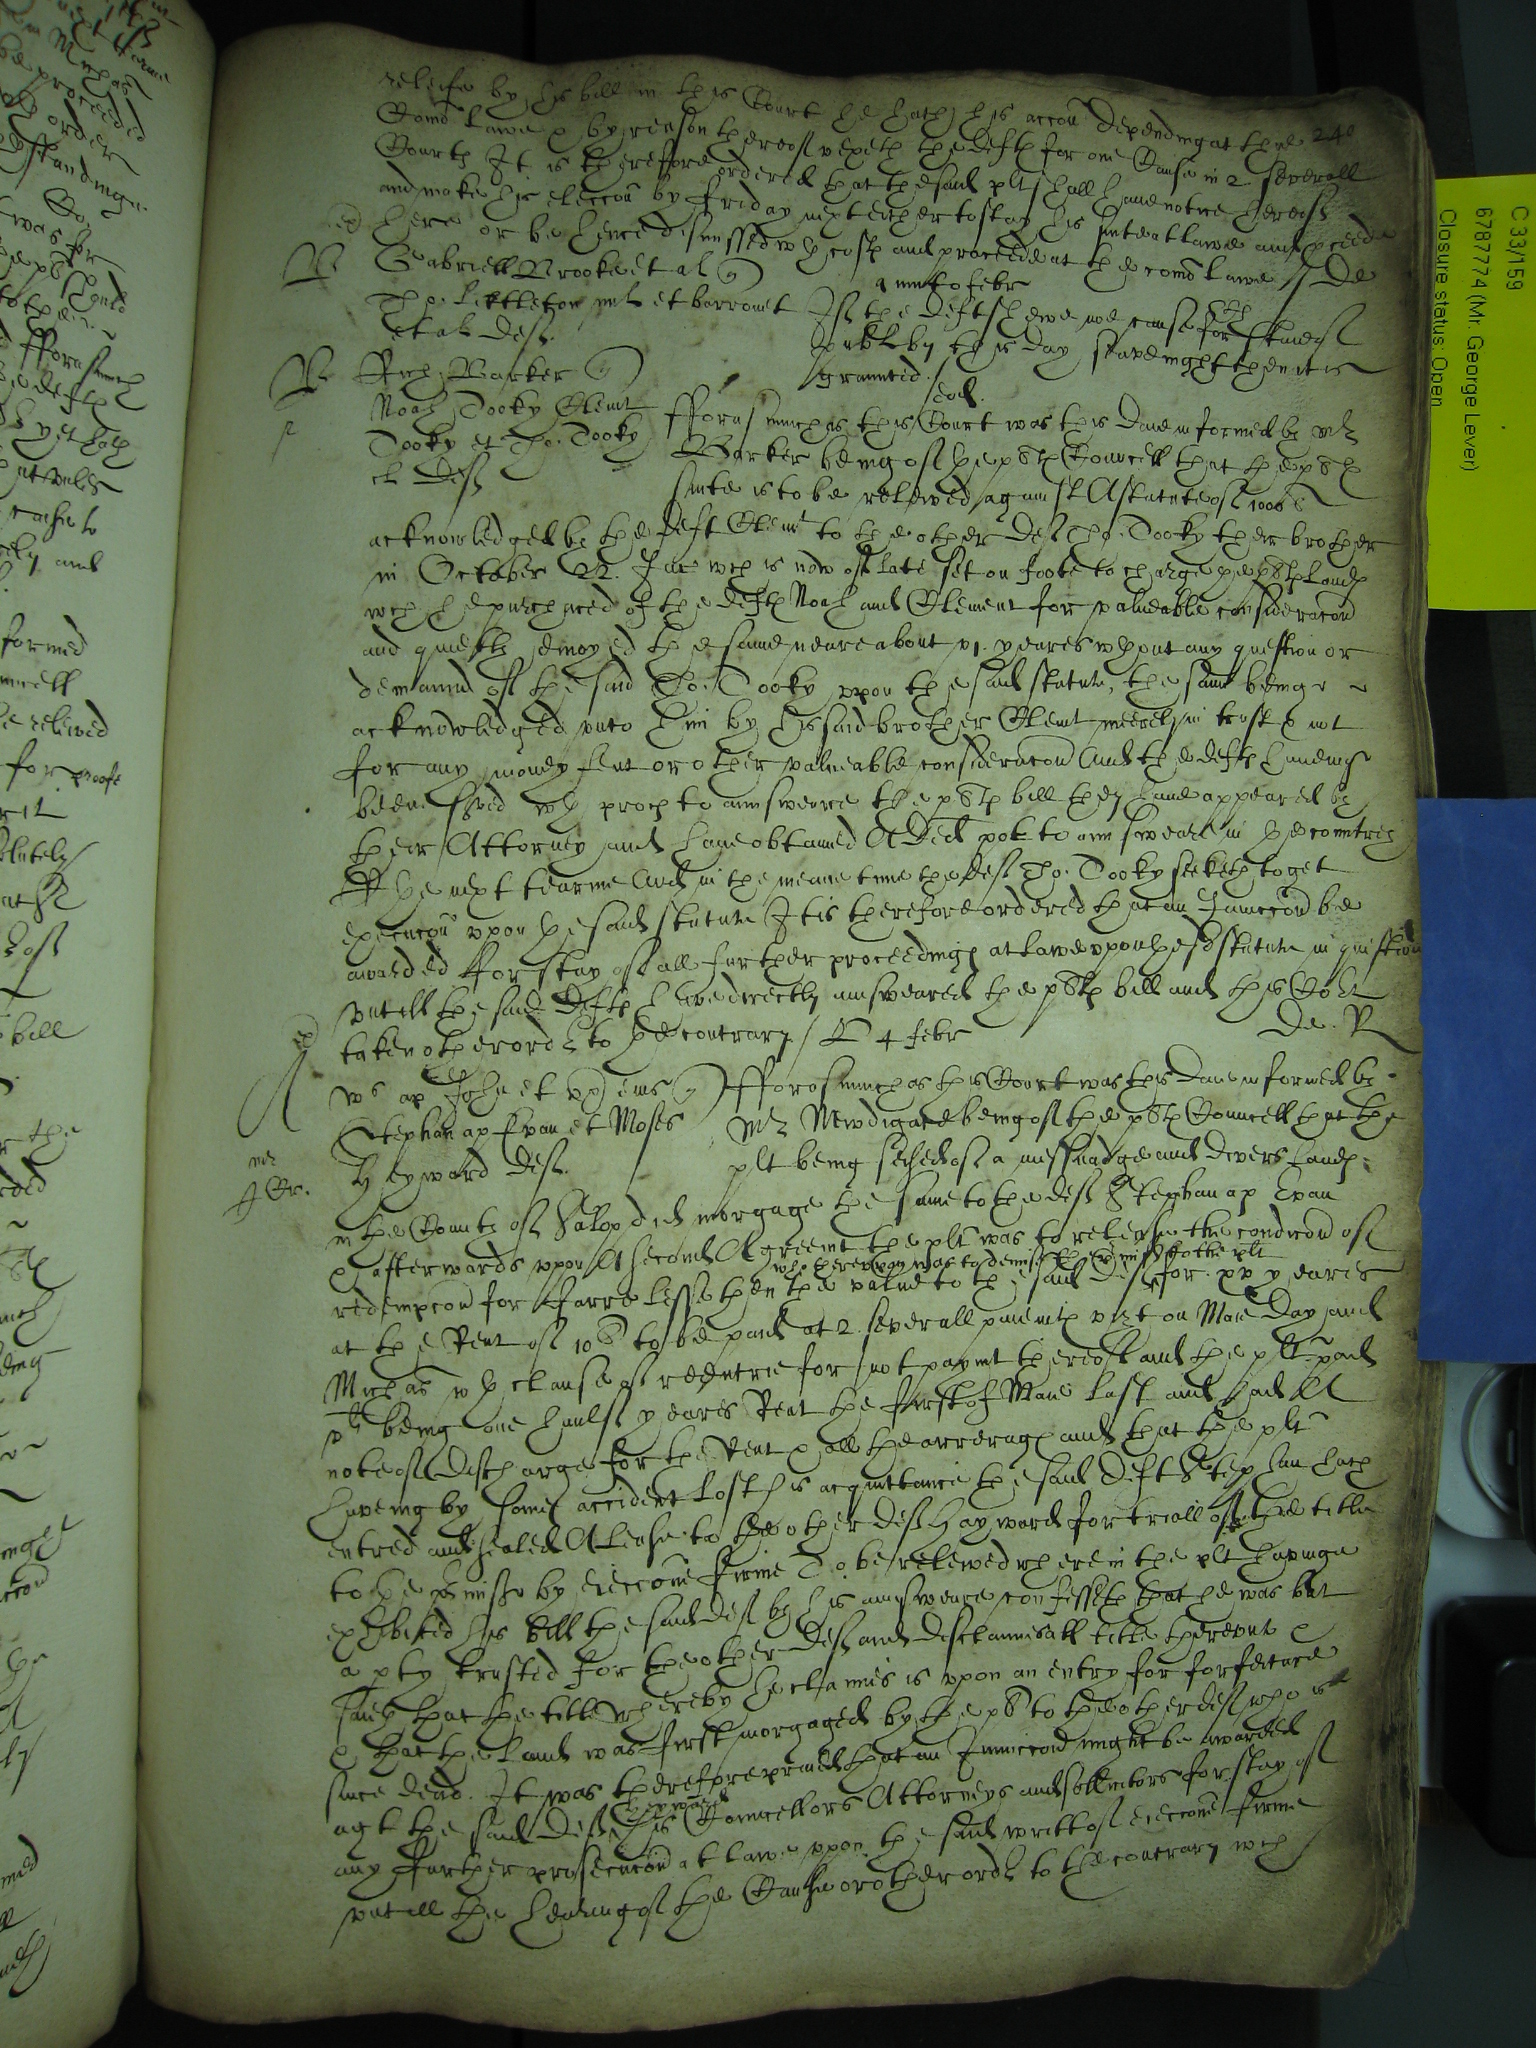 releife by his bill in this Court he hath his accon depending at the 240
Comon Lawe & by reason thereof vexeth the defts for one Cause in 2 severall
Courts It is therefore ordered that the said plt shall have notice hereof
and make his eleccon by friday next either to stay his suite at lawe and pceed
here or be hence dismissed wth costs and proceede at the comon lawe
Gabriell Brooke et al
Tho. Littleton et barronet
et al deft
quinto febr
If the deft shewe noe cause for
publ by this day seavenight then it is
graunted
Rich. Barker
Noah Dooky Clemt
Dooky et Tho. Dooky
deft
eod.
fforasmuch as this Court was this daie informed by Mr
Barker being of the plts Councell that the plts
suite is to be releived against A statute of 1000l
acknowledged by the deft Clemt to the other deft Tho. Dooky their brother
in October 22. Jac wch is now of late set on foote to charge the plts Lands
wch he purchaced of the defts Noah and Clement for valueable consideracon
and quietly enioyed the same neare about vj. yeares wthout any question or
demaund of the said Tho. Dooky upon the said statute, the same being
acknowledged unto him by his said brother Clemt meerely in trust & not
for any money lent or other valueable consideracon And the defts haveing
beene served wth proces to aunsweare the plts bill they have appeared by
their Attorney and have obtained A Ded pot to aunsweare in the countrey
the next tearme And in the meane time the deft Tho. Dooky seeketh to get
execucon upon the said statute It is therefore ordered that an Iniunccon be
awarded ffor stay of all further proceedings at lawe upon the sd statute in question
untill the said defts have directly aunsweared the plts bill and this Court
taken other order to the contrary / 4 febr
Wm ap John et ux
Stephan ap Evan et Moses
Heyward deft.
fforasmuch as this Court was this daie informed by
Mr Newdigate being of the plts Councell that the
plt being seised of a messuadge and divers Lands
in the County of Salop did morgage the same to the deft Stephan ap Evan
& afterwards upon A second Agreemt the plt was to release the condicon of
who thereupon was to demise the pmisses to the plt
redempcon for ffarre lesse then the value to the said deft for xv yeares
at the Rent of 10l to be paid at 2. severall paiemts vizt on Maie Day and
Michas wth clause of reentrie for not paymt thereof and the plt paid
vl being one haulf yeares Rent the first of Maie last and had A
note of discharge for the Rent & all the arrerages and that the plt
haveing by some accident lost his acquittance the said deft Stephan hath
entred and sealed A lease to the other deft Hayward for triall of the title
to the pmisses by eieccone firme To be releived wherein the plt haveing
exhibited his bill the said deft by his aunsweare confesseth that he was but
a pty trusted for the other deft and disclaimes all title thereunto &
saith that the title whereby he claimes is upon an entry for forfeiture
& that the land was first morgaged by the plt to the other deft who is
since dead. It was therefore praied that an Iniunccon might be awarded
agt the said deft Heyward his Councellors Attorneys and sollicitors for stay of
any further prosecucon at lawe upon the said writt of eieccone firme
untill the hearing of the Cause or other order to the contrary wch
C 33/159
6787774 (Mr. George Lever)
Closure status: Open